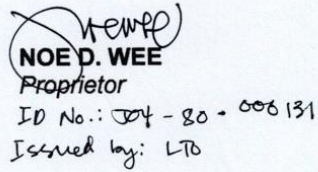 NOE D. WEE
Proprietor
ID No.: J04-80-000131
Issued by: LTO